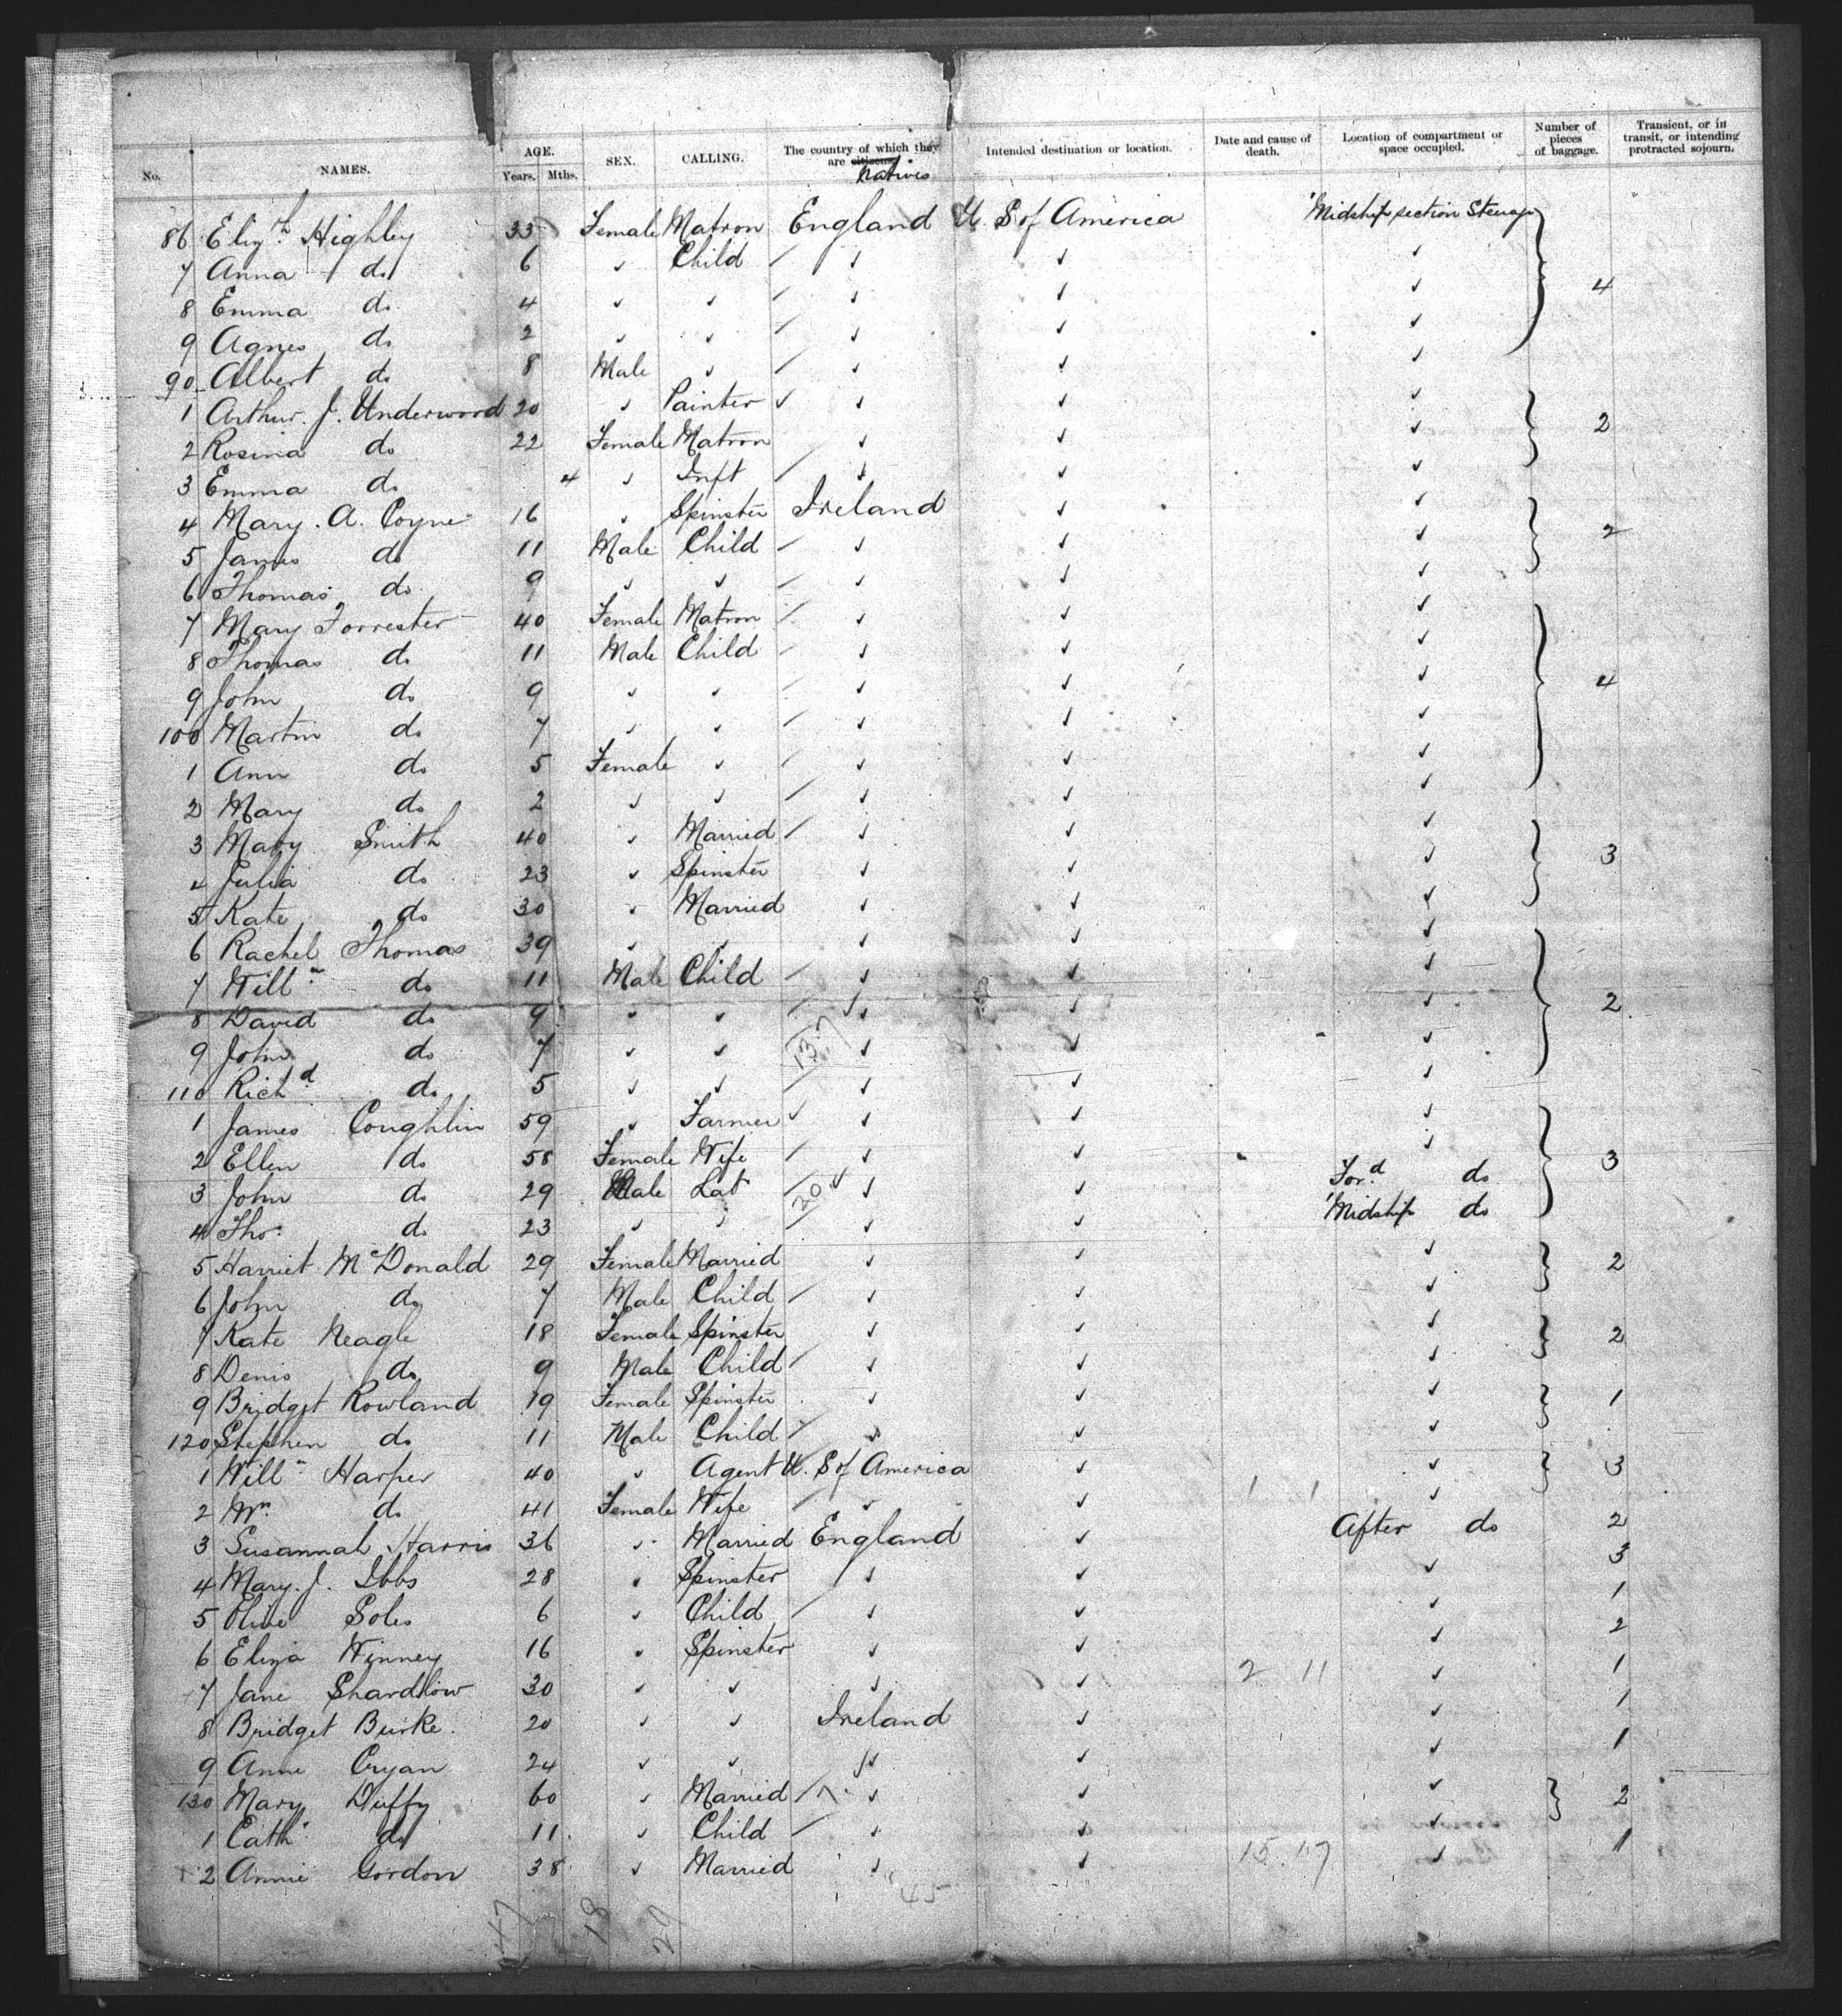 No. NAMES. AGE. Years. Mths. SEX. CALLING. The country of which they are citizens. Natives Intended destination or location. Date and cause of death. Location of compartment or space occupied. Number of pieces of baggage. Transient, or in transit, or intending protracted sojourn.
86 Eliz.th Highley 33 Female Matron England U. S of America Midship section Steerage
7 Anna do 6 ✓ Child / ✓ ✓ ✓
8 Emma do 4 ✓ ✓ / ✓ ✓ ✓ 4
9 Agnes do 2 ✓ ✓ / ✓ ✓ ✓
90 Albert do 8 Male ✓ / ✓ ✓ ✓
1 Arthur. J. Underwood 20 ✓ Painter ✓ ✓ ✓ ✓
2 Rosina do 22 Female Matron ✓ ✓ ✓ 2
3 Emma do 4 ✓ Inft / ✓ ✓ ✓
4 Mary. A. Coyne 16 ✓ Spinster Ireland ✓ ✓
5 James do 11 Male Child / ✓ ✓ ✓ 2
6 Thomas do 9 ✓ ✓ / ✓ ✓ ✓
7 Mary Forrester 40 Female Matron / ✓ ✓ ✓
8 Thomas do 11 Male Child / ✓ ✓ ✓
9 John do 9 ✓ ✓ / ✓ ✓ ✓ 4
100 Martin do 7 ✓ ✓ / ✓ ✓ ✓
1 Ann do 5 Female ✓ / ✓ ✓ ✓
2 Mary do 2 ✓ ✓ / ✓ ✓ ✓
3 Mary Smith 40 ✓ Married / ✓ ✓ ✓
4 Julia do 23 ✓ Spinster ✓ ✓ ✓ 3
5 Kate do 30 ✓ Married ✓ ✓ ✓
6 Rachel Thomas 39 ✓ ✓ ✓ ✓ ✓
7 Will.m do 11 Male Child / ✓ ✓ ✓
8 David do 9 ✓ ✓ / ✓ ✓ ✓ 2
9 John do 7 ✓ ✓ 137 ✓ ✓ ✓
110 Rich.d do 5 ✓ ✓ / ✓ ✓ ✓
1 James Coughlin 59 ✓ Farmer ✓ ✓ ✓ ✓
2 Ellen do 58 Female Wife / ✓ ✓ ✓
3 John do 29 Male Lab 20 ✓ ✓ ✓ For.d do 3
4 Tho. do 23 ✓ ✓ ✓ ✓ Midship do
5 Harriet McDonald 29 Female Married ✓ ✓ ✓ 2
6 John do 7 Male Child / ✓ ✓ ✓
7 Kate Neagle 18 Female Spinster ✓ ✓ ✓ 2
8 Denis do 9 Male Child / ✓ ✓ ✓
9 Bridget Rowland 19 Female Spinster ✓ ✓ ✓ 1
120 Stephen do 11 Male Child / ✓ ✓ ✓
1 Will.m Harper 40 ✓ Agent U. S of America ✓ ✓ 3
2 Mrs. do 41 Female Wife / ✓ ✓ ✓
3 Susannah Harris 36 ✓ Married England ✓ After do 2
4 Mary. J. Ibbs 28 ✓ Spinster ✓ ✓ ✓ 3
5 Olive Soles 6 ✓ Child / ✓ ✓ ✓ 1
6 Eliza Winney 16 ✓ Spinster ✓ ✓ ✓ 2
7 Jane Shardlow 30 ✓ ✓ ✓ ✓ 2 11 ✓ 1
8 Bridget Burke. 20 ✓ ✓ Ireland ✓ ✓ 1
9 Anne Cryan 24 ✓ ✓ ✓ ✓ ✓ 1
130 Mary Duffy 60 ✓ Married / ✓ ✓ ✓ 2
1 Cath. do 11 ✓ Child / ✓ ✓ ✓
2 Annie Gordon 38 ✓ Married ✓ ✓ 15. 17 ✓ 1
47 18 29 45